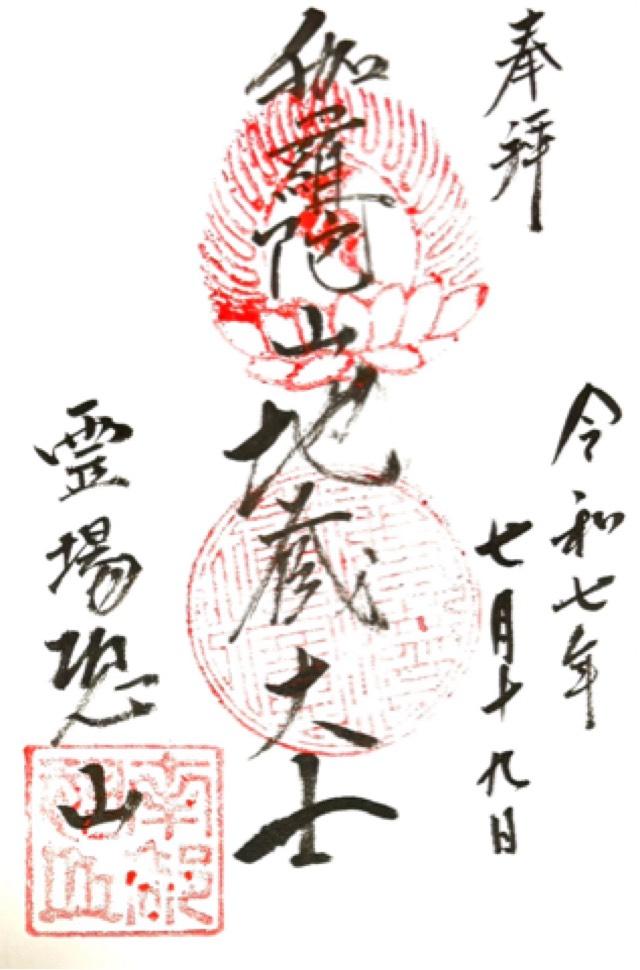 奉拝
令和七年
七月十九日
伽羅陀山地蔵大士
霊場恐山